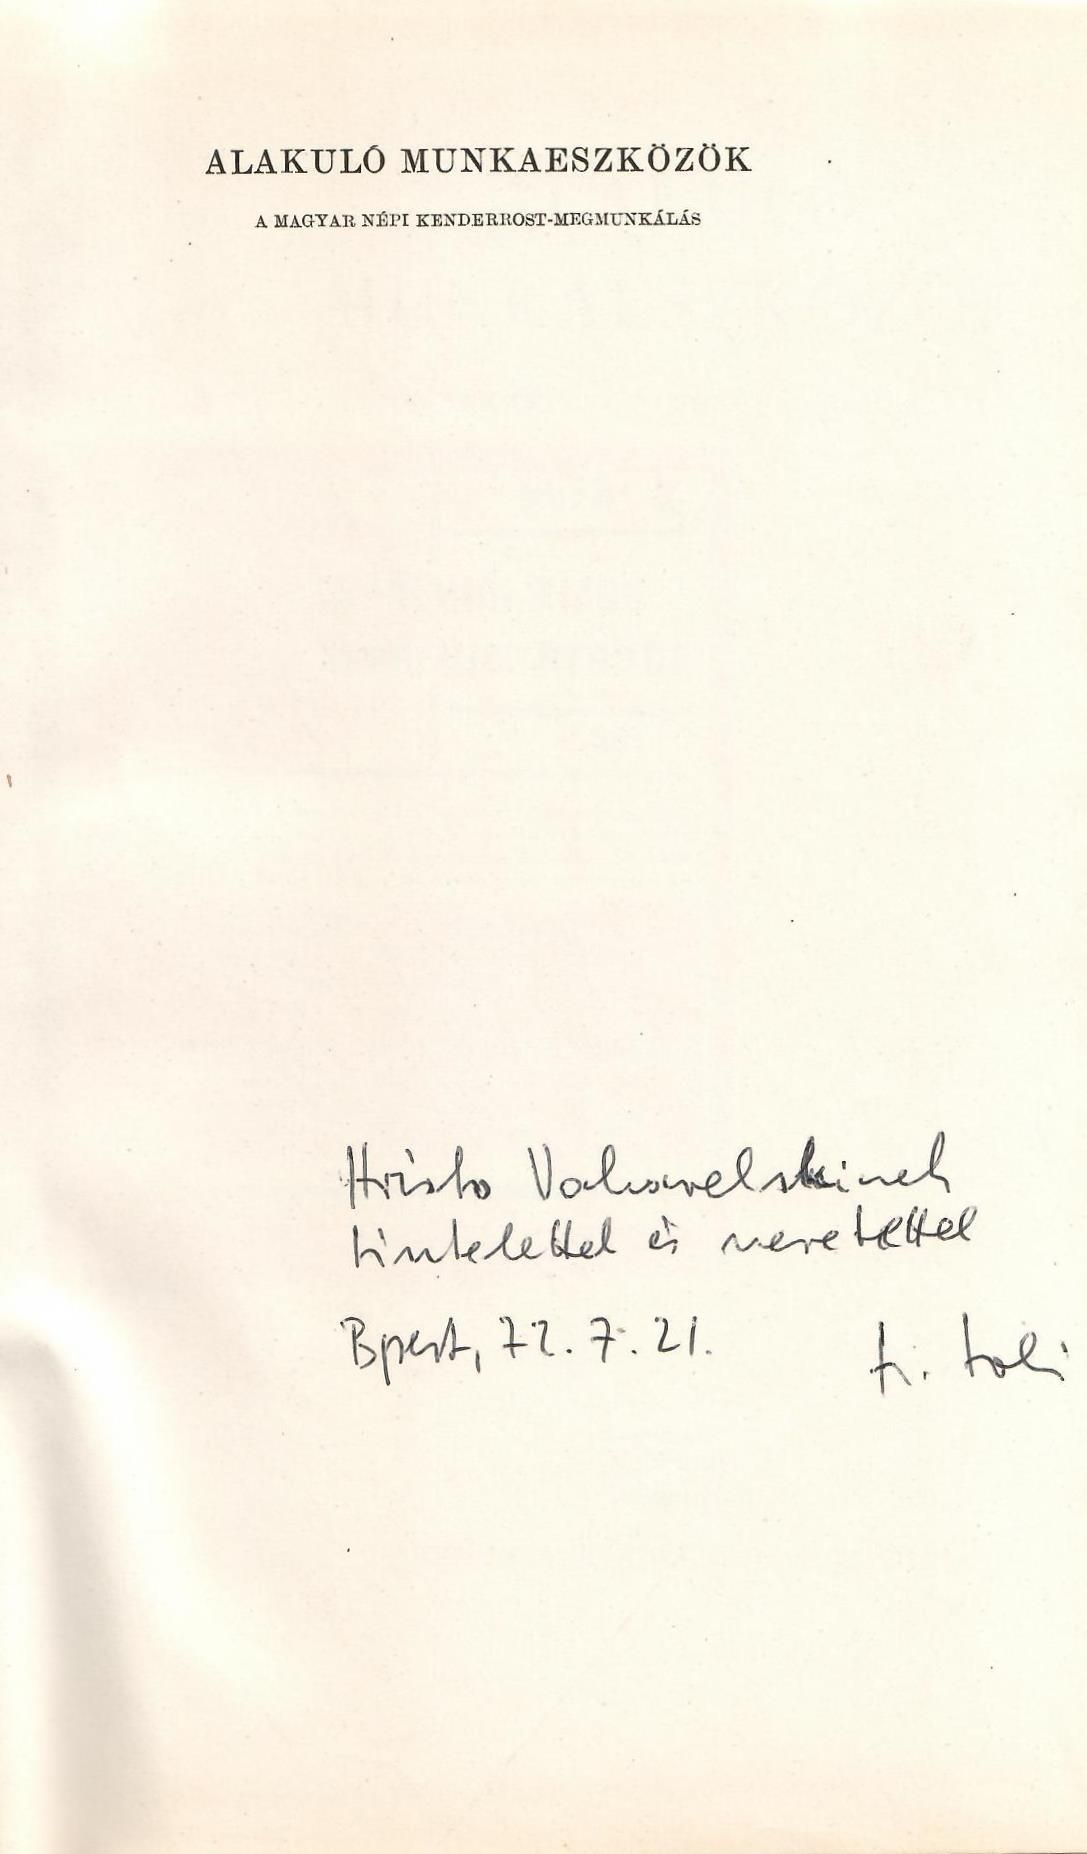 ALAKULÓ MUNKAESZKÖZÖK
A MAGYAR NÉPI KENDERROST-MEGMUNKÁLÁS
Hristo Vakarelskinek
tisztelettel és szeretettel
Bpest, 72. 7. 21.